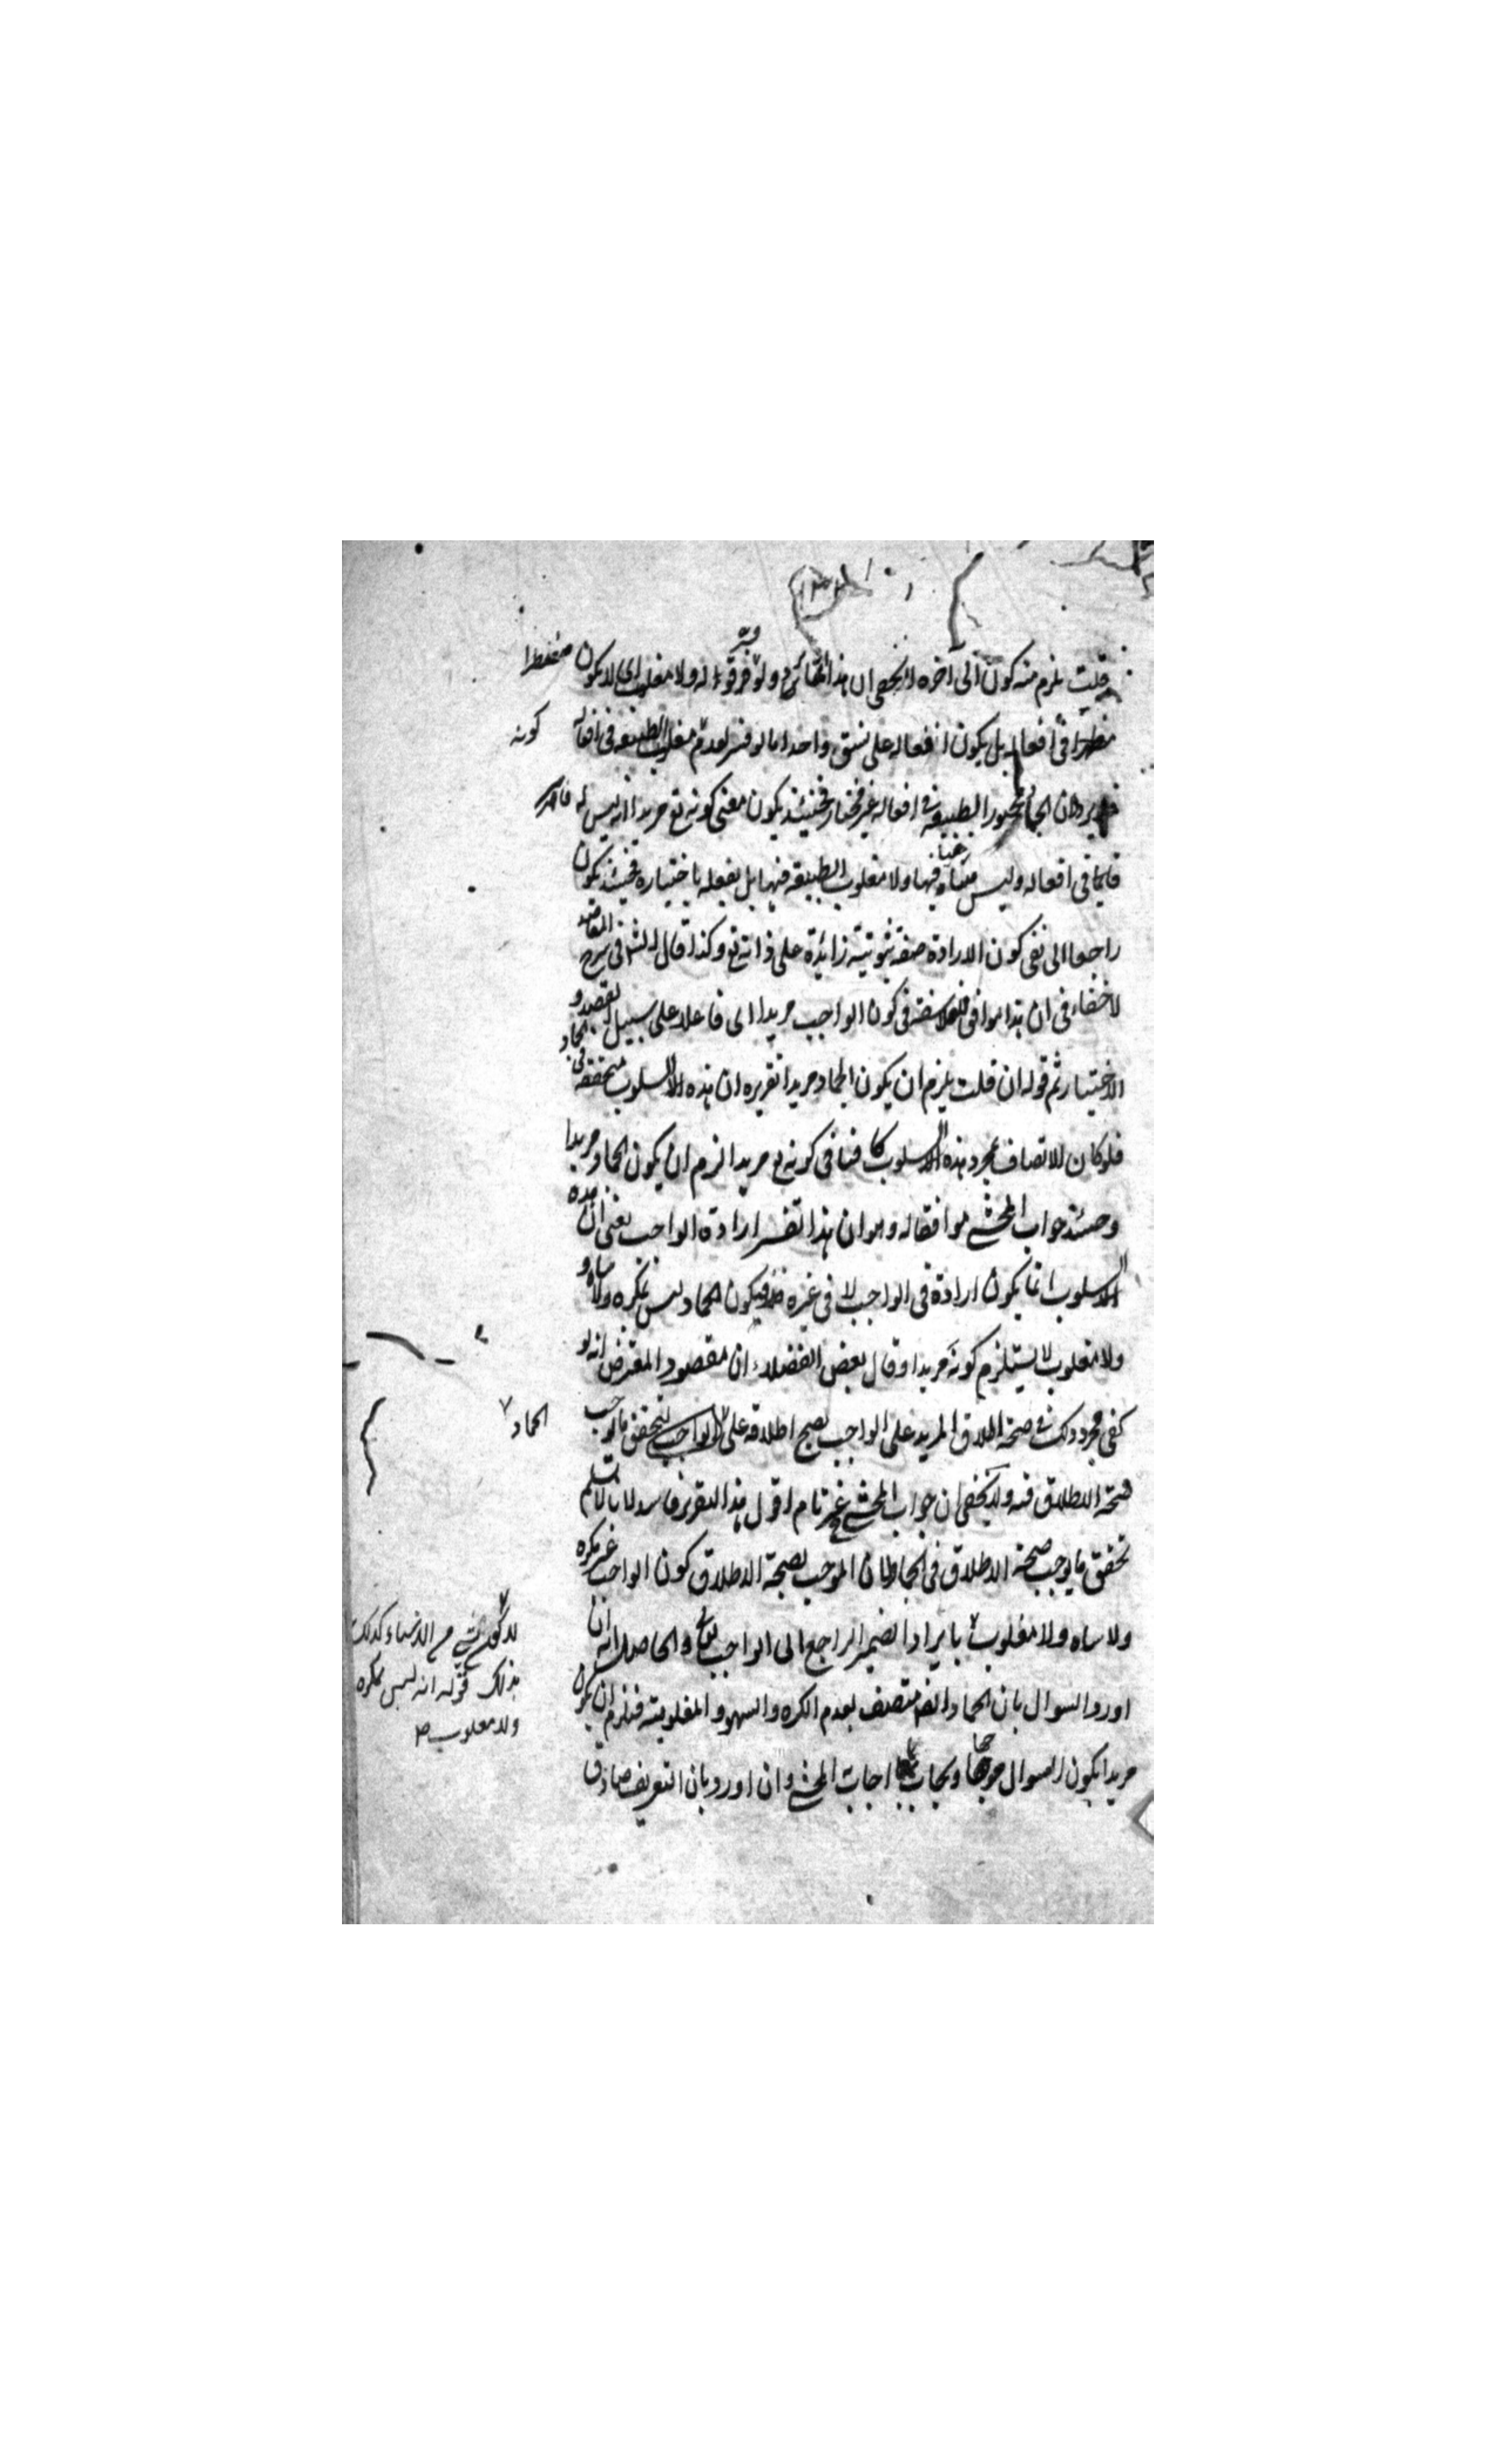 قلت يلزم منه كون الى آخره لا يخفى ان هذا انما يرد ولو فرّ قوله ولا مغلوب اى لا يكون مضطرا
مضطرا فى أفعاله بل يكون افعاله على نسق واحد اما لو فسر بعدم مغلوب الطبيعة فى افعاله كونه
يرد ان الجماد مجبور الطبيعة فى افعاله غير مختار فحينئذ يكون معنى كونه تع مريدا انه ليس له قاسر
فى افعاله وليس ساه فيها ولا مغلوب الطبيعة فيها بل يفعله باختياره فحينئذ يكون
راجعا الى نفى كون الارادة صفة ثبوتية زائدة على ذاته تع وكذا قال الش فى شرح المقاصد
لا خفاء فى ان هذا موافق للفلاسفة فى كون الواجب مريدا اى فاعلا على سبيل القصد و
الاختيار ثم قوله ان قلت يلزم ان يكون الجماد مريدا تقريره ان هذه السلوب متحققة فى الجماد
فلو كان الاتصاف بمجرد هذه السلوب كافيا فى كونه تع مريدا لزم ان يكون الجماد مريدا
وحينئذ جواب المحشى موافقا له وهو ان هذا تفسير ارادة الواجب يعنى ان هذه
السلوب انما يكون ارادة فى الواجب لا فى غيره فيكون الجماد ليس بمكره ولا ساه و
ولا مغلوب لا يستلزم كونه مريدا وقال بعض الفضلاء ان مقصود المعترض انه لو
كفى مجرد ذلك فى صحة اطلاق المريد على الواجب يصح اطلاقه على الواجب لتحقق ما يوجب
الجماد
صحة الاطلاق فيه ولا يخفى ان جواب المحشى غير تام اقول هذا التقرير فاسد لانا لا نسلم
تحقق ما يوجب صحة الاطلاق فى الجماد فان الموجب لصحة الاطلاق كون الواجب غير مكره
ولا ساه ولا مغلوب بايراد الضمير الراجع الى الواجب والحاصل انه ان
لا كون شىء من الاشياء كذلك
بذلك قوله انه ليس بمكره
ولا مغلوب ص
اورد السوال بان الجماد ايضا متصف بعدم الكره والسهو والمغلوبية فيلزم ان يكون
مريدا يكون السوال موجها ويجاب بما اجاب المحشى وان اورد بان التعريف صادق